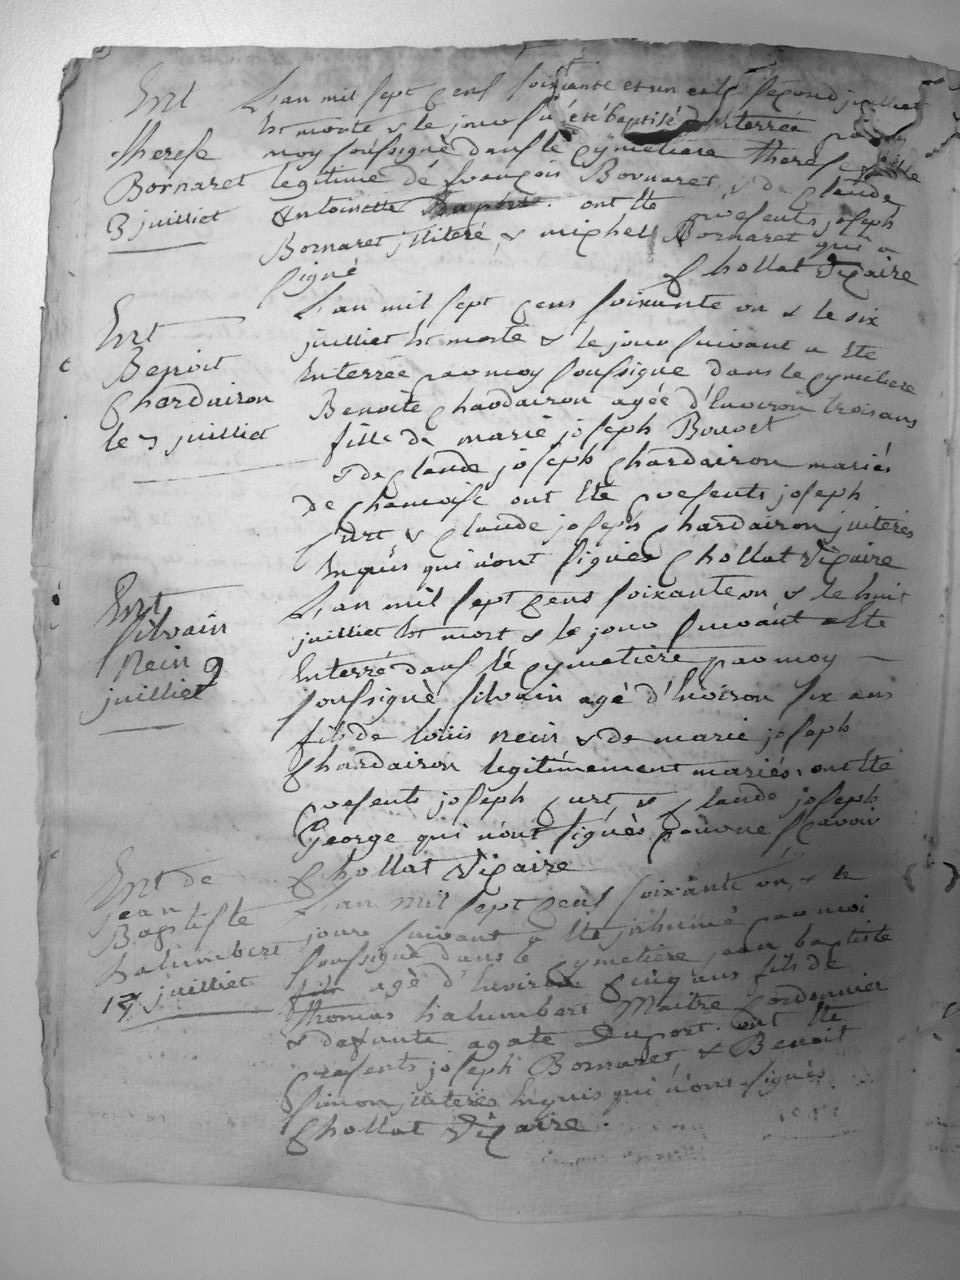 Ent
therese
Bornaret
3 juilliet
L'an mil sept cens soixante et un et le second juilliet
est morte & le jour su été baptisé enterrée par
moy soussigné dans le cymetiere therese fille
legitime de françois Bornaret & de Claude
Antoinette Duport ont été presents joseph
Bornaret illiteré & michel Bornaret qui a
signé Chollat Vicaire
Ent
Benoit
Chardairon
le 7 juilliet
L'an mil sept cens soixante on & le six
juilliet est morte & le jour suivant a été
Enterrée par moy soussigné dans le cymetiere
Benoite Chardairon agée d'Environ trois ans
fille de marie joseph Bouvet
& de Claude joseph Chardairon mariés
de ont été presents joseph
Curt & Claude joseph Chardairon jliterés
Enquis qui n'ont signés Chollat Vicaire
Ent
silvain
Nein 9
juilliet
L'an mil sept cens soixante on & le huit
juilliet est mort & le jour suivant a été
Enterré dans le cymetière par moy
soussigné silvain agé d'Environ six ans
fils de loüis nein & de marie joseph
Chardairon legitimement mariés, ont été
presents joseph Curt, & Claude joseph
George qui n'ont signés pour ne sçavoir
Chollat Vicaire
Ent de
jean
Baptiste
halumbert
17 juilliet
L'an mil sept cens soixante on, & le
jour suivant a été jnhumé par moi
soussigné dans le cymetiere, jean baptiste
agé d'Environ cinq ans fils de
thomas halumbert Maitre Cordonnier
& defunte agate Duport. ont été
presents joseph Bornaret & Benoit
Simon jliterés Enquis qui n'ont signés
Chollat Vicaire.